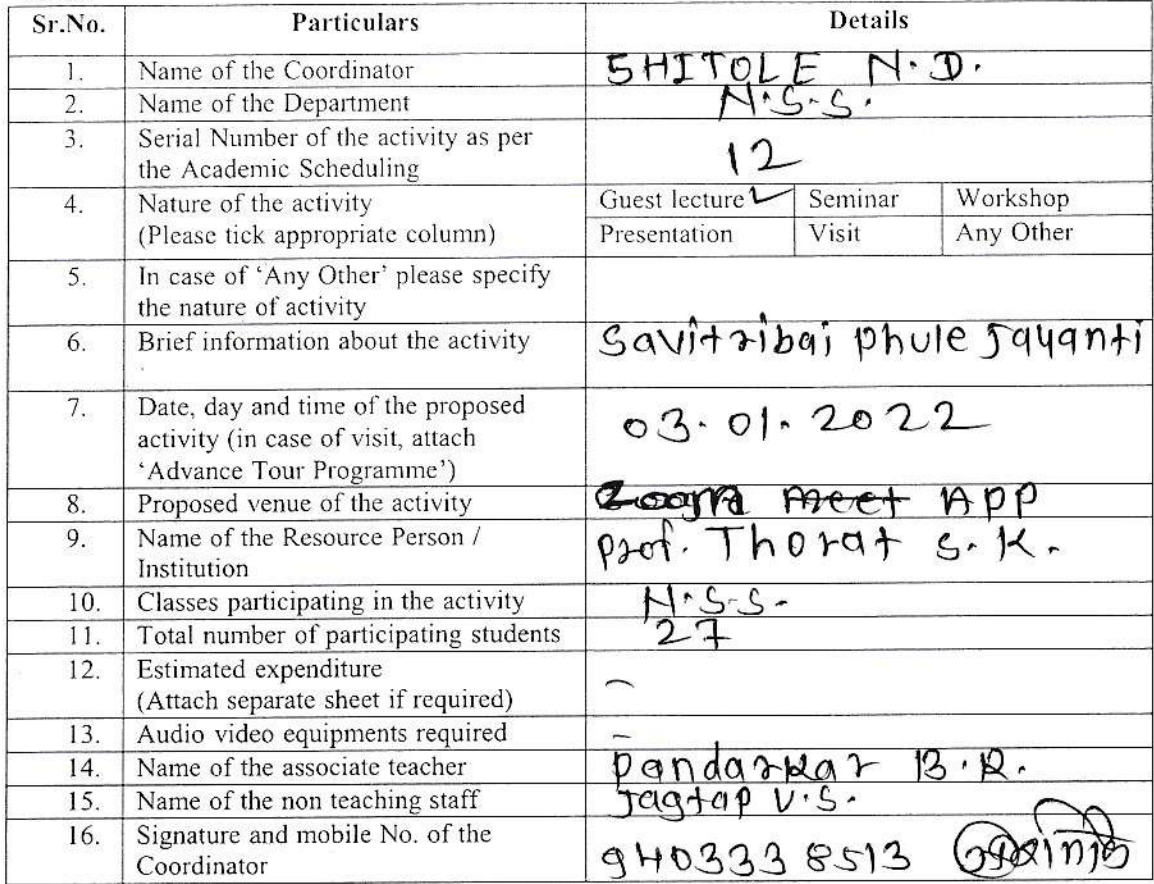 Sr.No. Particulars Details
1. Name of the Coordinator SHITOLE N.D.
2. Name of the Department N.S.S.
3. Serial Number of the activity as per
the Academic Scheduling 12
4. Nature of the activity Guest lecture ✓ Seminar Workshop
(Please tick appropriate column) Presentation Visit Any Other
5. In case of ‘Any Other’ please specify
the nature of activity
6. Brief information about the activity Savitribai phule Jayanti
7. Date, day and time of the proposed
activity (in case of visit, attach 03.01.2022
‘Advance Tour Programme’)
8. Proposed venue of the activity meet APP
9. Name of the Resource Person /
Institution prof. Thorat S.K.
10. Classes participating in the activity N.S.S.
11. Total number of participating students 27
12. Estimated expenditure
(Attach separate sheet if required) -
13. Audio video equipments required -
14. Name of the associate teacher pandarkar B.R.
15. Name of the non teaching staff Jagtap V.S.
16. Signature and mobile No. of the
Coordinator 9403338513